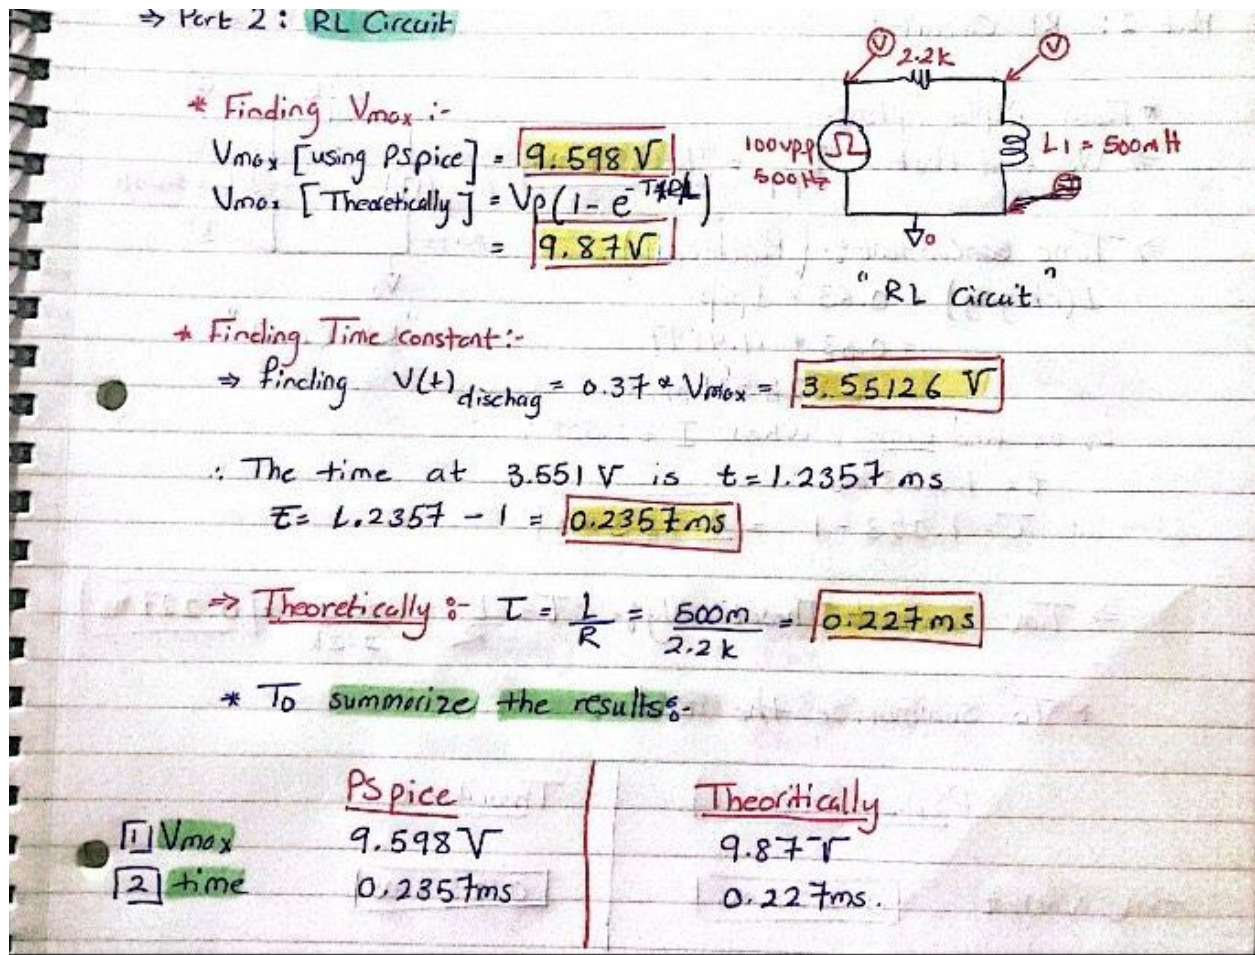 ⇒ Part 2: RL Circuit
V
2.2K
V
100Vp.p
500Hz
L1 = 500mH
0
"RL Circuit"
* Finding Vmax :-
Vmax [using PSpice] = 9.598 V
Vmax [Theoretically] = Vp(1 - e
= 9.87V
* Finding Time constant:-
⇒ finding V(t) dischag = 0.37 * Vmax = 3.55126 V
∴ The time at 3.551 V is t = 1.2357 ms
τ = 1.2357 - 1 = 0.2357ms
⇒ Theoretically :- τ = L/R = 500m/2.2k = 0.227ms
* To summarize the results:-
PSpice Theoritically
1 Vmax 9.598 V 9.87 V
2 time 0.2357ms 0.227ms.